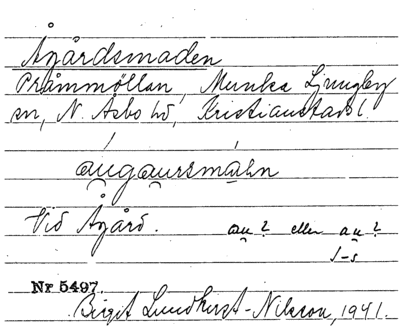 Ågårdsmaden
Pråmmöllan, Munka Ljungby
sn, N. Åsbo hd, Kristianstads l.
au̯gau̯rsmahn
Vid Ågård. au̯ ? eller au̯ ?
l-s
Nr 5497.
Birgit Lundkvist-Nilsson, 1941.